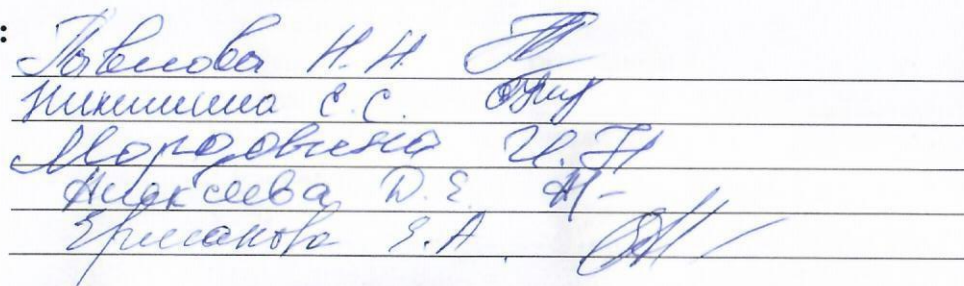 :
Павлова Н.Н.
Никишина С.С.
Мордовина И.Н
Алексеева Д.Е.
Ермакова Е.А